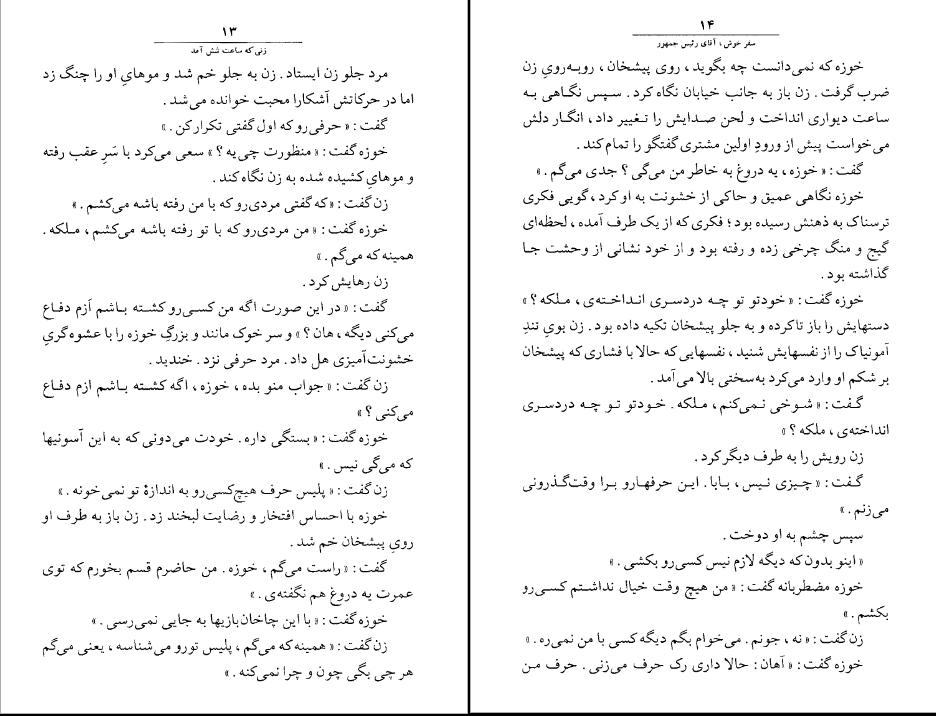 ۱۳
زنی که ساعت شش آمد
مرد جلو زن ایستاد. زن به جلو خم شد و موهایِ او را چنگ زد
اما در حرکاتش آشکارا محبت خوانده می‌شد.
گفت: «حرفی‌رو که اول گفتی تکرار کن.»
خوزه گفت: «منظورت چی‌یه؟» سعی می‌کرد با سَرِ عقب رفته
و موهایِ کشیده شده به زن نگاه کند.
زن گفت: «که گفتی مردی‌رو که با من رفته باشه می‌کشم.»
خوزه گفت: «من مردی‌رو که با تو رفته باشه می‌کشم، ملکه.
همینه که می‌گم.»
زن رهایش کرد.
گفت: «در این صورت اگه من کسی‌رو کشته باشم اَزم دفاع
می‌کنی دیگه، هان؟» و سر خوک مانند و بزرگِ خوزه را با عشوه‌گریِ
خشونت‌آمیزی هل داد. مرد حرفی نزد. خندید.
زن گفت: «جواب منو بده، خوزه، اگه کشته باشم ازم دفاع
می‌کنی؟»
خوزه گفت: «بستگی داره. خودت می‌دونی که به این آسونیها
که می‌گی نیس.»
زن گفت: «پلیس حرف هیچ‌کسی‌رو به اندازهٔ تو نمی‌خونه.»
خوزه با احساس افتخار و رضایت لبخند زد. زن باز به طرف او
رویِ پیشخان خم شد.
گفت: «راست می‌گم، خوزه. من حاضرم قسم بخورم که توی
عمرت یه دروغ هم نگفته‌ی.»
خوزه گفت: «با این چاخان‌بازیها به جایی نمی‌رسی.»
زن گفت: «همینه که می‌گم، پلیس تورو می‌شناسه، یعنی می‌گم
هر چی بگی چون و چرا نمی‌کنه.»
۱۴
سفر خوش، آقای رئیس جمهور
خوزه که نمی‌دانست چه بگوید، روی پیشخان، روبه‌رویِ زن
ضرب گرفت. زن باز به جانب خیابان نگاه کرد. سپس نگاهی به
ساعت دیواری انداخت و لحن صدایش را تغییر داد، انگار دلش
می‌خواست پیش از ورودِ اولین مشتری گفتگو را تمام کند.
گفت: «خوزه، یه دروغ به خاطر من می‌گی؟ جدی می‌گم.»
خوزه نگاهی عمیق و حاکی از خشونت به او کرد، گویی فکری
ترسناک به ذهنش رسیده بود؛ فکری که از یک طرف آمده، لحظه‌ای
گیج و منگ چرخی زده و رفته بود و از خود نشانی از وحشت جا
گذاشته بود.
خوزه گفت: «خودتو تو چه دردسری انداخته‌ی، ملکه؟»
دستهایش را باز تا کرده و به جلو پیشخان تکیه داده بود. زن بویِ تندِ
آمونیاک را از نفسهایش شنید، نفسهایی که حالا با فشاری که پیشخان
بر شکم او وارد می‌کرد به‌سختی بالا می‌آمد.
گفت: «شوخی نمی‌کنم، ملکه. خودتو تو چه دردسری
انداخته‌ی، ملکه؟»
زن رویش را به طرف دیگر کرد.
گفت: «چیزی نیس، بابا. این حرفهارو برا وقت‌گذرونی
می‌زنم.»
سپس چشم به او دوخت.
«اینو بدون که دیگه لازم نیس کسی‌رو بکشی.»
خوزه مضطربانه گفت: «من هیچ وقت خیال نداشتم کسی‌رو
بکشم.»
زن گفت: «نه، جونم. می‌خوام بگم دیگه کسی با من نمی‌ره.»
خوزه گفت: «آهان: حالا داری رک حرف می‌زنی. حرف من